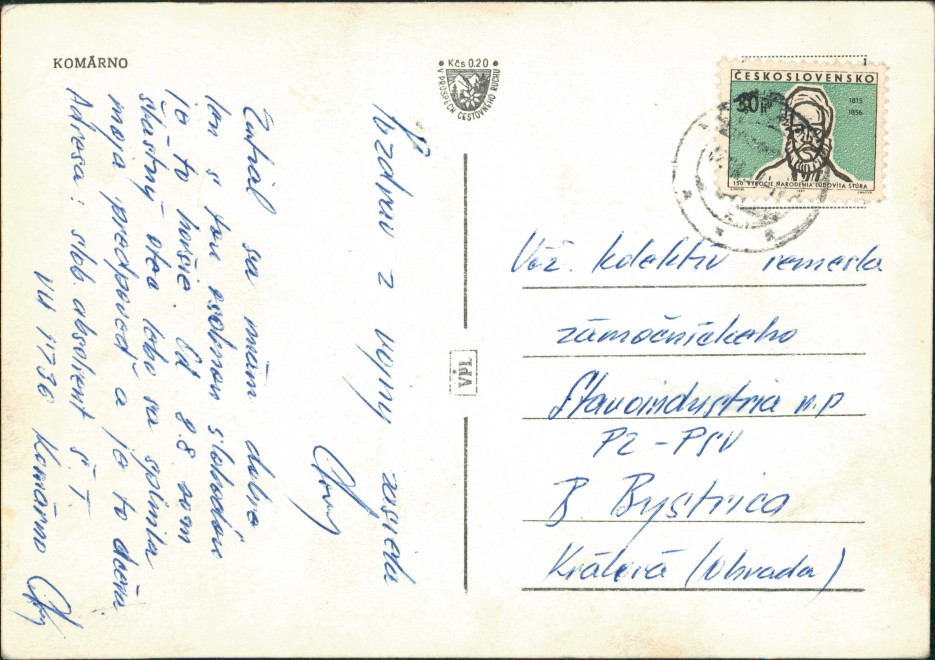 KOMÁRNO
Kčs 0.20
V PROSPECH CESTOVNÉHO RUCHU
ČESKOSLOVENSKO
30 h
1815
1856
150. VÝROČIE NARODENIA ĽUDOVÍTA ŠTÚRA
Pozdrav z vojny zasiela
Zatiaľ sa mám dobre
len s tou osobnou slobodou
je to horšie. Od 8.8 som
šťastný otec lebo sa splnila
moja predpoveď a je to
Adresa: slob. absolvent Š. T.
VÚ 1736 Komárno
VPL
Váž. kolektív remesla
zámočníckeho
Stavoindustria n.p
PZ - PSV
B. Bystrica
Králová (Ohrada)